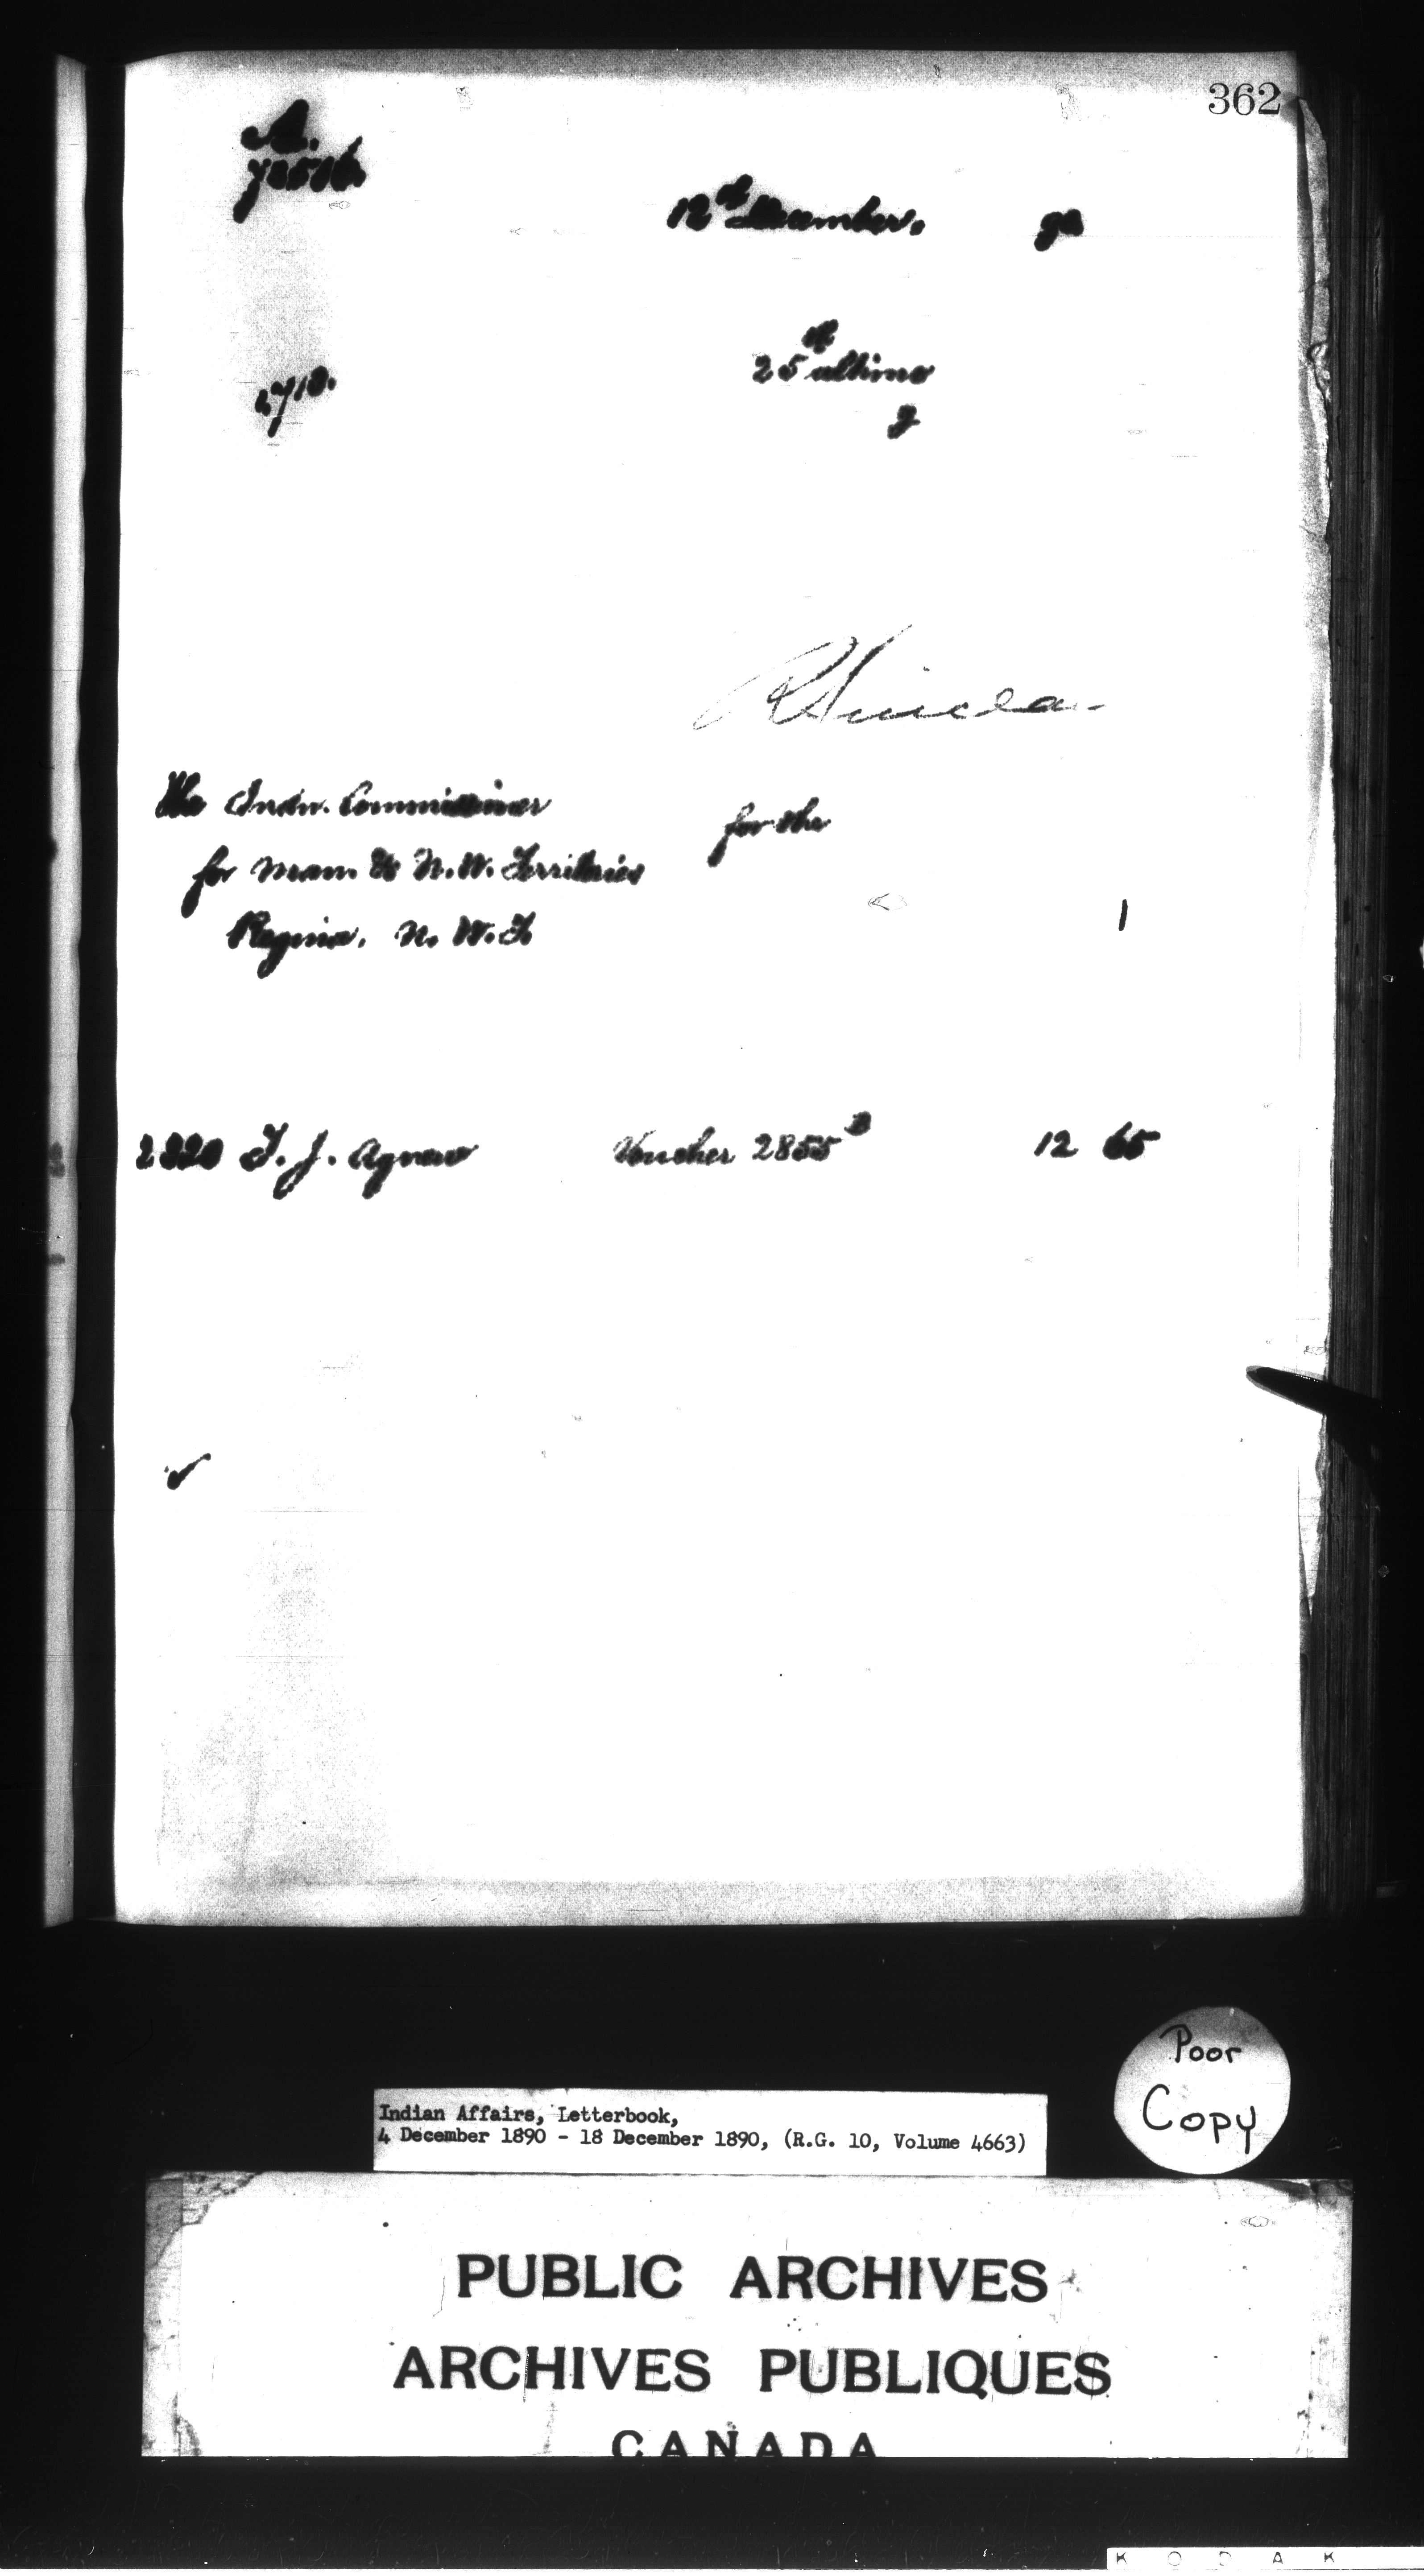 362
A.
12th December. 90
25th ultimo
1718.
R Sincla
The Indn. Commissioner
for the
for Man. & N.W. Territories
Regina. N.W.T.
2320 T. J. Agnew Voucher 2855 B 12 65
Poor
Copy
Indian Affairs, Letterbook,
4 December 1890 - 18 December 1890, (R.G. 10, Volume 4663)
PUBLIC ARCHIVES
ARCHIVES PUBLIQUES
CANADA
KODAK